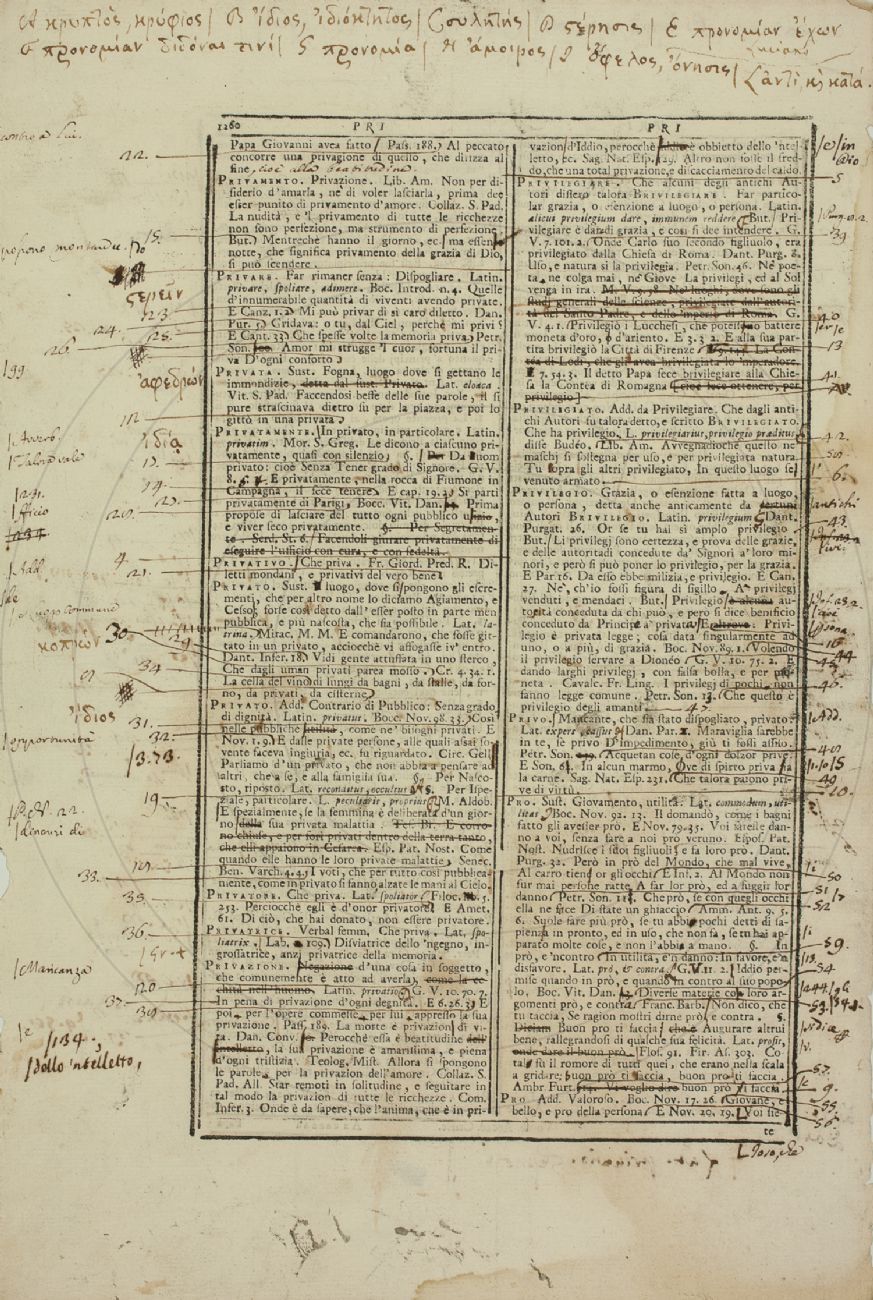 Α κρυπτός, κρύφιος | Β ἴδιος, ἰδιόκτητος | C συλητής | D στέρησις | Ε προνομίαν ἔχων
προνομίαν διδόναι τινί | G προνομία | Η ἄμοιρος | ὄφελος, ὄνησις |
L ἀντί, κατά.
1260 PRI
Papa Giovanni avea fatto. Pass. 188. Al peccato
concorre una privagione di quello, che dirizza al
fine, cioè alla beatitudine.
PRIVAMENTO. Privazione. Lib. Am. Non per di-
siderio d'amarla, nè di voler lasciarla, prima dee
esser punito di privamento d'amore. Collaz. S. Pad.
La nudità, e 'l privamento di tutte le ricchezze
non sono perfezione, ma strumento di perfezione.
But. Mentrechè hanno il giorno, ec. ma essendo
notte, che significa privamento della grazia di Dio,
si può scendere.
PRIVARE. Far rimaner senza: Dispogliare. Latin.
privare, spoliare, adimere. Boc. Introd. n. 4. Quelle
d'innumerabile quantità di viventi avendo private.
E Canz. 1. 2. Mi può privar di sì caro diletto. Dan.
Pur. Gridava: o tu, dal Ciel, perchè mi privi?
E Cant. 33. Che spesse volte la memoria priva. Petr.
Son. Amor mi strugge 'l cuor, fortuna il pri-
va D'ogni conforto
PRIVATA. Sust. Fogna, luogo dove si gettano le
immondizie, detta dal sust. Privato. Lat. cloaca.
Vit. S. Pad. Faccendosi beffe delle sue parole, il si
pure strascinava dietro su per la piazza, e poi lo
gittò in una privata
PRIVATAMENTE. In privato, in particolare. Latin.
privatim. Mor. S. Greg. Le dicono a ciascuno pri-
vatamente, quasi con silenzio. §. Da uom
privato: cioè Senza Tener grado di Signore. G. V.
8. E privatamente, nella rocca di Fiumone in
Campagna, il fece tenere. E cap. 19. 2. Si partì
privatamente di Parigi. Bocc. Vit. Dan. Prima
propose di lasciare del tutto ogni pubblico uficio,
e viver seco privatamente. §. Per Segretamen-
te. Serd. St. 6. Facendoli giurare privatamente di
eseguire l'uficio con cura, e con fedeltà.
PRIVATIVO. Che priva. Fr. Giord. Pred. R. Di-
letti mondani, e privativi del vero bene
PRIVATO. Sust. luogo, dove si pongono gli escre-
menti, che per altro nome lo diciamo Agiamento, e
Cesso, forse così detto dall'esser posto in parte men
pubblica, e più nascosta, che sia possibile. Lat. la-
trina. Mirac. M. M. E comandarono, che fosse git-
tato in un privato, acciocchè vi affogasse iv' entro.
Dant. Infer. 18. Vidi gente attuffata in uno sterco,
Che dagli uman privati parea mosso. Cr. 4. 34. 1.
La cella del vino di lungi da bagni, da stalle, da for-
no, da privati, da cisterne
PRIVATO. Add. Contrario di Pubblico: Senza grado
di dignità. Latin. privatus. Bocc. Nov. 98. 33. Così
nelle pubbliche, come ne' bisogni privati. E
Nov. 1. 9. E dalle private persone, alle quali assai so-
vente faceva ingiuria, ec. fu riguardato. Circ. Gell.
Parliamo d'un privato, che non abbia a pensare ad
altri, che a se, e alla famiglia sua. §. Per Nasco-
sto, riposto. Lat. reconditus, occultus §. Per Ispe-
ziale, particolare. L. peculiaris, proprius. M. Aldob.
E spezialmente, se la femmina è deliberata d'un gior-
no della sua privata malattia. Tes. Br. E corro-
no chiuse, e per fori privati dentro della terra tanto,
che elli appaiono in Cesarea. Esp. Pat. Nost. Come
quando elle hanno le loro private malattie. Senec.
Ben. Varch. 4. 4. I voti, che per tutto così pubblica-
mente, come in privato si fanno, alzate le mani al Cielo.
PRIVATORE. Che priva. Lat. spoliator. Filoc. 3.
253. Perciocchè egli è d'onor privatore. E Amet.
61. Di ciò, che hai donato, non essere privatore.
PRIVATRICE. Verbal femm. Che priva. Lat. spo-
liatrix. Lab. 109. Disviatrice dello 'ngegno, in-
grossatrice, anzi privatrice della memoria.
PRIVAZIONE. Negazione d'una cosa in soggetto,
che comunemente è atto ad averla, come la ce-
chità nell'huomo. Latin. privatio. G. V. 10. 70. 7.
In pena di privazione d'ogni degnità. E 6. 26. 3. E
poi per l'opere commesse, per lui, appresso la sua
privazione. Pass. 189. La morte è privazion di vi-
ta. Dan. Conv. Perocchè essa è beatitudine dell'
intelletto, la sua privazione è amarissima, e piena
d'ogni tristizia. Teolog. Mist. Allora si spongono
le parole, per la privazion dell'amore. Collaz. S.
Pad. All. Star remoti in solitudine, e seguitare in
tal modo la privazion di tutte le ricchezze. Com.
Infer. 3. Onde è da sapere, che l'anima, che è in pri-
PRI
vazion d'Iddio, perocchè Iddio è obbietto dello 'ntel-
letto, ec. Sag. Nat. Esp. 129. Altro non fosse il fred-
do, che una total privazione, e discacciamento del caldo.
PRIVILEGIARE. Che alcuni degli antichi Au-
tori dissero talora BRIVILEGIARE. Far partico-
lar grazia, o esenzione a luogo, o persona. Latin.
alicui privilegium dare, immunem reddere. But. Pri-
vilegiare è dar di grazia, e così si dee intendere. G.
V. 7. 101. 2. Onde Carlo suo secondo figliuolo, era
privilegiato dalla Chiesa di Roma. Dant. Purg. 8.
Uso, e natura sì la privilegia. Petr. Son. 46. Nè poe-
ta, ne colga mai, nè Giove La privilegi, ed al Sol
venga in ira. M. V. 9. 98. Ne' luoghi, dove sono gli
studj generali delle scienze, privilegiate dall'autori-
tà del Santo Padre, e dello 'mperio di Roma. G.
V. 4. 1. Privilegiò i Lucchesi, che potessono battere
moneta d'oro, o d'ariento. E 3. 3. 2. E alla sua par-
tita brivilegiò la Città di Firenze. E 9. La Con-
tea di Lodi, che gli avea brivilegiata lo 'mperadore.
E 7. 54. 3. Il detto Papa fece brivilegiare alla Chie-
sa la Contèa di Romagna [cioè fece ottenere, per
privilegio]
PRIVILEGIATO. Add. da Privilegiare. Che dagli anti-
chi Autori fu talora detto, e scritto BRIVILEGIATO.
Che ha privilegio. L. privilegiarius, privilegio praeditus
disse Budéo. Lib. Am. Avvegnadiochè quello ne'
maschi si sostegna per uso, e per privilegiata natura.
Tu sopra gli altri privilegiato, In questo luogo se'
venuto armato.
PRIVILEGIO. Grazia, o esenzione fatta a luogo,
o persona, detta anche anticamente da
Autori BRIVILEGIO. Latin. privilegium. Dant.
Purgat. 26. Or se tu hai sì amplo privilegio.
But. Li privilegj sono certezza, e prova delle grazie,
e delle autoritadi concedute da' Signori a' loro mi-
nori, e però si può ponere lo privilegio, per la grazia.
E Par 16. Da esso ebbe milizia, e privilegio. E Can.
27. Nè, ch'io fossi figura di sigillo A' privilegj
venduti, e mendaci. But. Privilegio è alcuna au-
torità conceduta da chi può, e però si dice benificio
conceduto da Principe a' privati. E altrove: Privi-
legio è privata legge; cosa data singularmente ad
uno, o a più, di grazia. Boc. Nov. 89. 1. Volendo
il privilegio servare a Dionéo. G. V. 10. 75. 2. E
dando larghi privilegj, con falsa bolla, e per
neta. Cavalc. Fr. Ling. I privilegj di pochi, non
fanno legge comune. Petr. Son. 13. Che questo è
privilegio degli amanti.
PRIVO. Mancante, che sia stato dispogliato, privato.
Lat. expers, cassus. Dan. Par. 1. Maraviglia sarebbe
in te, se privo D'impedimento, giù ti fossi assiso.
Petr. Son. Acquetan cole, d'ogni dolzor prive.
E Son. 64. In alcun marmo, Ove di spirto priva sia
la carne. Sag. Nat. Esp. 231. Che talora paiono pri-
ve di virtù.
PRO. Sust. Giovamento, utilità. Lat. commodum, uti-
litas. Boc. Nov. 92. 13. Il domandò, come i bagni
fatto gli avesser prò. E Nov. 79. 35. Voi fareste dan-
no a voi, senza fare a noi prò veruno. Espos. Pat.
Nost. Nudrisce i suoi figliuoli, e fa loro prò. Dant.
Purg. 32. Però in prò del Mondo, che mal vive,
Al carro tieni or gli occhi. E Inf. 2. Al Mondo non
fur mai persone ratte A far lor prò, ed a fuggir lor
danno. Petr. Son. Che prò, se con quegli occhi
ella ne face Di state un ghiaccio. Amm. Ant. 9. 5.
6. Suole fare più prò, se tu abbi pochi detti di sa-
pienza in pronto, ed in uso, che non fa, se tu hai ap-
parato molte cose, e non l'abbi a mano. §. In
prò, e 'ncontro In utilità, e 'n danno: In favore, e 'n
disfavore. Lat. pro, & contra. G. V. 11. 2. Iddio per-
mise quando in prò, e quando in contro al suo popo-
lo. Boc. Vit. Dan. Diverse materie col loro ar-
gomenti prò, e contra. Franc. Barb. Non dico, che
tu taccia, Se ragion mostri dirne prò, e contra. §.
Diciam Buon prò ti faccia, che è Augurare altrui
bene, rallegrandosi di qualche sua felicità. Lat. prosit,
onde dare il buon prò. Flos. 91. Fir. As. 303. Co-
tal fu il romore di tutti quei, che erano nella scala
a gridare: buon prò ti faccia, buon prò ti faccia.
Ambr. Furt. Vi voglio dire buon prò vi faccia
PRO. Add. Valoroso. Boc. Nov. 17. 26. Giovane, e
bello, e pro della persona. E Nov. 29. 19. Voi sie-
te
στερεῖν
ἀφεδρών
ἰδίᾳ
κοπρών
ἴδιος
22.
15.
23.
24.
25.
26.
12.
14.
20.
4.
21.
30.
29
34
31.
32.
19.
33.
35.
36.
Mancanza
134.
dello intelletto,
5
39
40
13
41.
42.
6.
antichi
43.
44
45.
46.
49
50
51
52
54
9.
55.
56.